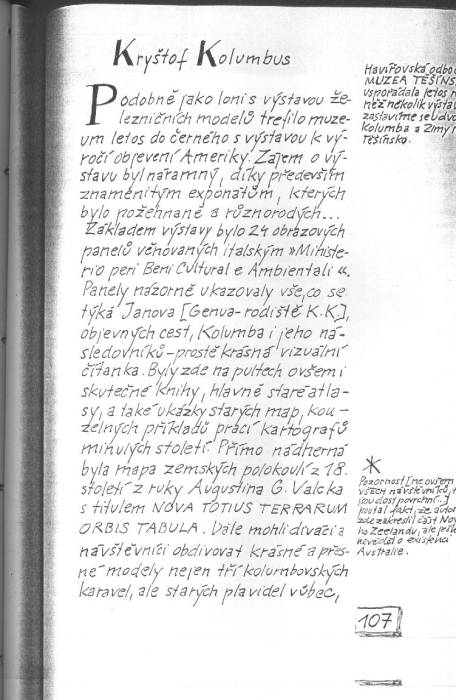 Kryštof Kolumbus
Podobně jako loni s výstavou že-
lezničních modelů trefilo muze-
um letos do černého s výstavou k vý-
ročí objevení Ameriky. Zájem o vý-
stavu byl náramný, díky především
znamenitým exponátům, kterých
bylo požehnaně a různorodých...
Základem výstavy bylo 24 obrazových
panelů věnovaných italským »Ministe-
rio peri Beni Cultural e Ambientali«.
Panely názorně ukazovaly vše, co se
týká Janova [Genua-rodiště K.K.],
objevných cest, Kolumba i jeho ná-
sledovníků – prostě krásná vizuální
čítanka. Byly zde na pultech ovšem i
skutečné knihy, hlavně staré atla-
sy, a také ukázky starých map, kou-
zelných příkladů prací kartografů
minulých století. Přímo nádherná
byla mapa zemských polokoulí z 18.
století z ruky Augustina G. Valcka
s titulem NOVA TOTIUS TERRARUM
ORBIS TABULA. Dále mohli diváci a
návštěvníci obdivovat krásné a přes-
né modely nejen tří kolumbovských
karavel, ale starých plavidel vůbec,
Havířovská odbo
MUZEA TĚŠÍNS
uspořádala letos
než několik výsta
zastavíme se u dvo
Kolumba a Zimy
Těšínska.
*
Pozornost [ne ovšem
všech návštěvníků,
jsou dost povrchní...]
poutal fakt, že autor
zde zakreslil část Nov
ho Zeelandu, ale ješt
nevěděl o existenci
Austrálie.
107